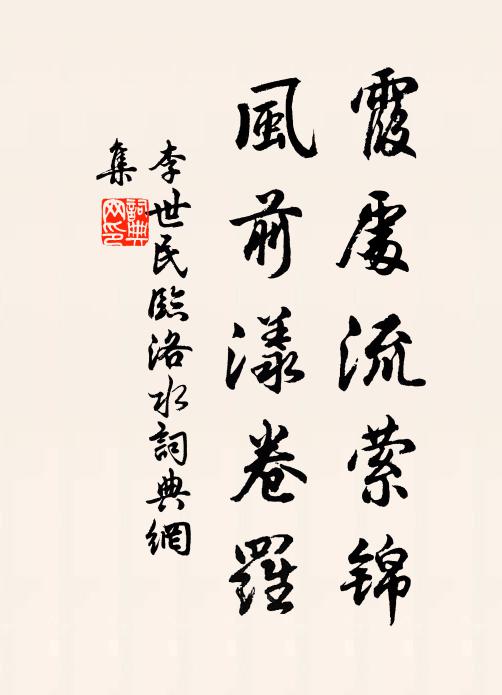 霞處流萦锦
風前漾卷羅
李世民臨洛水詞典網
集
詞典
网印